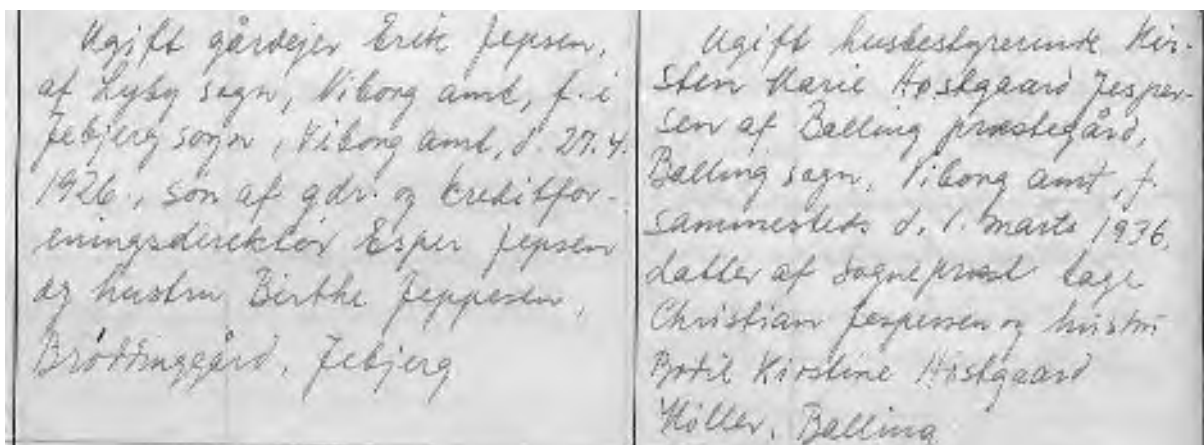 Ugift gårdejer Erik Jepsen,
af Lyby sogn, Viborg amt, f. i
Jebjerg sogn, Viborg amt, d. 27.4.
1926., søn af gdr. og kreditfor-
eningsdirektør Esper Jepsen
og hustru Birthe Jeppesen,
Brøddinggård, Jebjerg
Ugift husbestyrerinde Kir-
sten Marie Høstgaard Jesper-
sen af Balling præstegård,
Balling sogn, Viborg amt, f.
sammesteds d. 1. marts 1936,
datter af sognepræst Tage
Christian Jespersen og hustru
Bodil Kirstine Høstgaard
Møller, Balling